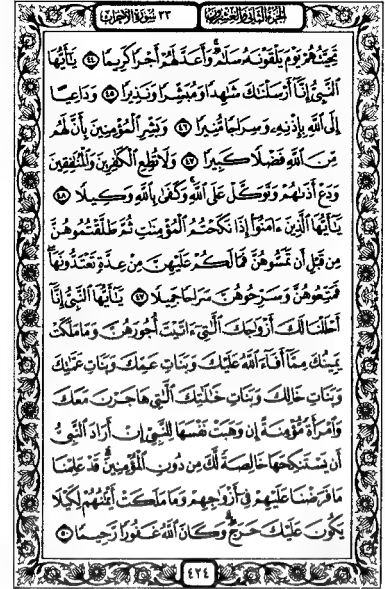 الجزء الثاني والعشرون ٣٣ سورة الأحزاب
تَحِيَّتُهُمْ يَوْمَ يَلْقَوْنَهُۥ سَلَٰمٌ ۚ وَأَعَدَّ لَهُمْ أَجْرًا كَرِيمًا ۝٤٤ يَٰٓأَيُّهَا
ٱلنَّبِىُّ إِنَّآ أَرْسَلْنَٰكَ شَٰهِدًا وَمُبَشِّرًا وَنَذِيرًا ۝٤٥ وَدَاعِيًا
إِلَى ٱللَّهِ بِإِذْنِهِۦ وَسِرَاجًا مُّنِيرًا ۝٤٦ وَبَشِّرِ ٱلْمُؤْمِنِينَ بِأَنَّ لَهُم
مِّنَ ٱللَّهِ فَضْلًا كَبِيرًا ۝٤٧ وَلَا تُطِعِ ٱلْكَٰفِرِينَ وَٱلْمُنَٰفِقِينَ
وَدَعْ أَذَىٰهُمْ وَتَوَكَّلْ عَلَى ٱللَّهِ ۚ وَكَفَىٰ بِٱللَّهِ وَكِيلًا ۝٤٨
يَٰٓأَيُّهَا ٱلَّذِينَ ءَامَنُوٓا۟ إِذَا نَكَحْتُمُ ٱلْمُؤْمِنَٰتِ ثُمَّ طَلَّقْتُمُوهُنَّ
مِن قَبْلِ أَن تَمَسُّوهُنَّ فَمَا لَكُمْ عَلَيْهِنَّ مِنْ عِدَّةٍ تَعْتَدُّونَهَا ۖ
فَمَتِّعُوهُنَّ وَسَرِّحُوهُنَّ سَرَاحًا جَمِيلًا ۝٤٩ يَٰٓأَيُّهَا ٱلنَّبِىُّ إِنَّآ
أَحْلَلْنَا لَكَ أَزْوَٰجَكَ ٱلَّٰتِىٓ ءَاتَيْتَ أُجُورَهُنَّ وَمَا مَلَكَتْ
يَمِينُكَ مِمَّآ أَفَآءَ ٱللَّهُ عَلَيْكَ وَبَنَاتِ عَمِّكَ وَبَنَاتِ عَمَّٰتِكَ
وَبَنَاتِ خَالِكَ وَبَنَاتِ خَٰلَٰتِكَ ٱلَّٰتِى هَاجَرْنَ مَعَكَ
وَٱمْرَأَةً مُّؤْمِنَةً إِن وَهَبَتْ نَفْسَهَا لِلنَّبِىِّ إِنْ أَرَادَ ٱلنَّبِىُّ
أَن يَسْتَنكِحَهَا خَالِصَةً لَّكَ مِن دُونِ ٱلْمُؤْمِنِينَ ۗ قَدْ عَلِمْنَا
مَا فَرَضْنَا عَلَيْهِمْ فِىٓ أَزْوَٰجِهِمْ وَمَا مَلَكَتْ أَيْمَٰنُهُمْ لِكَيْلَا
يَكُونَ عَلَيْكَ حَرَجٌ ۗ وَكَانَ ٱللَّهُ غَفُورًا رَّحِيمًا ۝٥٠
٤٢٤